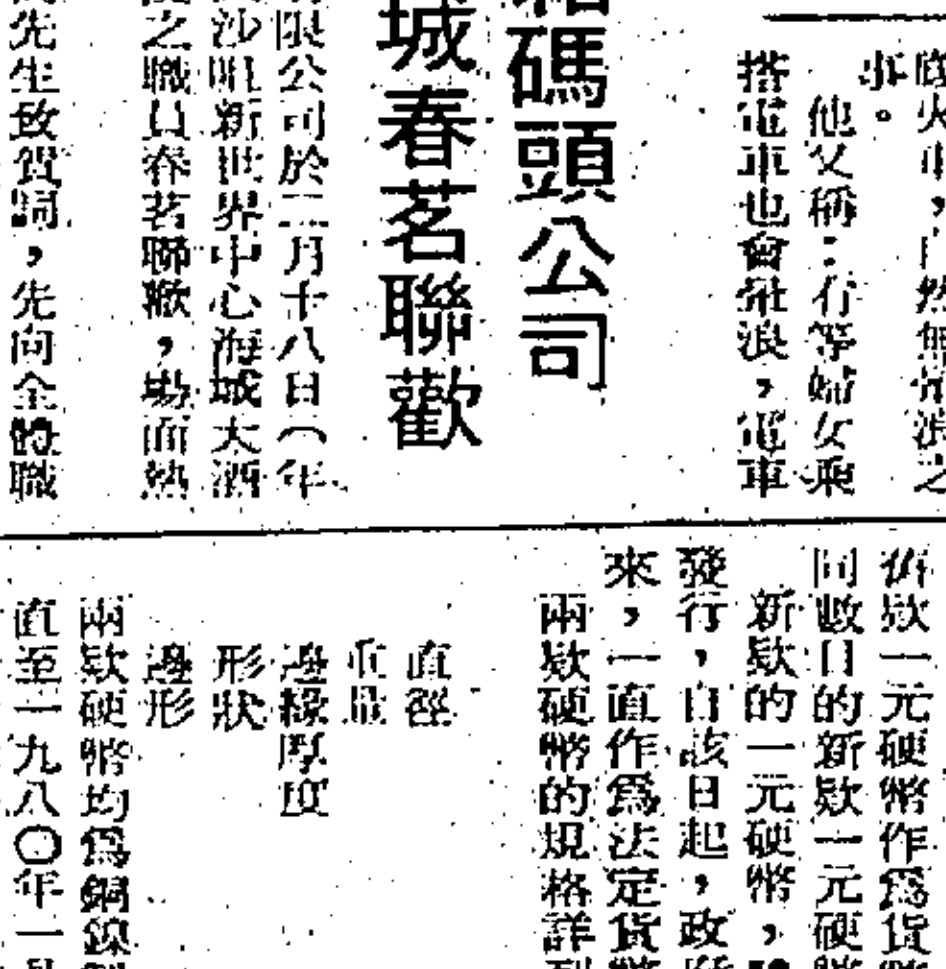 火車,自然無滑浪之
事。
他又稱:有等婦女乘
搭電車也會滑浪,電車
碼頭公司
城春茗聯歡
限公司於二月十八日(年
沙咀新世界中心海城大酒
之職員春茗聯歡,場面熱
先生致賀詞,先向全體職
舊款一元硬幣作為貨
同數目的新款一元硬
新款的一元硬幣,
發行,自該日起,政
來,一直作為法定貨幣
兩款硬幣的規格詳列
直徑
重量
邊緣厚度
形狀
邊形
兩款硬幣均為銅鎳
直至一九八〇年一月